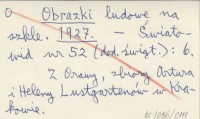 O Obrazki ludowe na
szkle. 1927. — Świato-
wid nr 52 (dod. świąt.): 6.
Z Orawy, zbiory Artura
i Heleny Lustgartenów w Kra-
kowie.